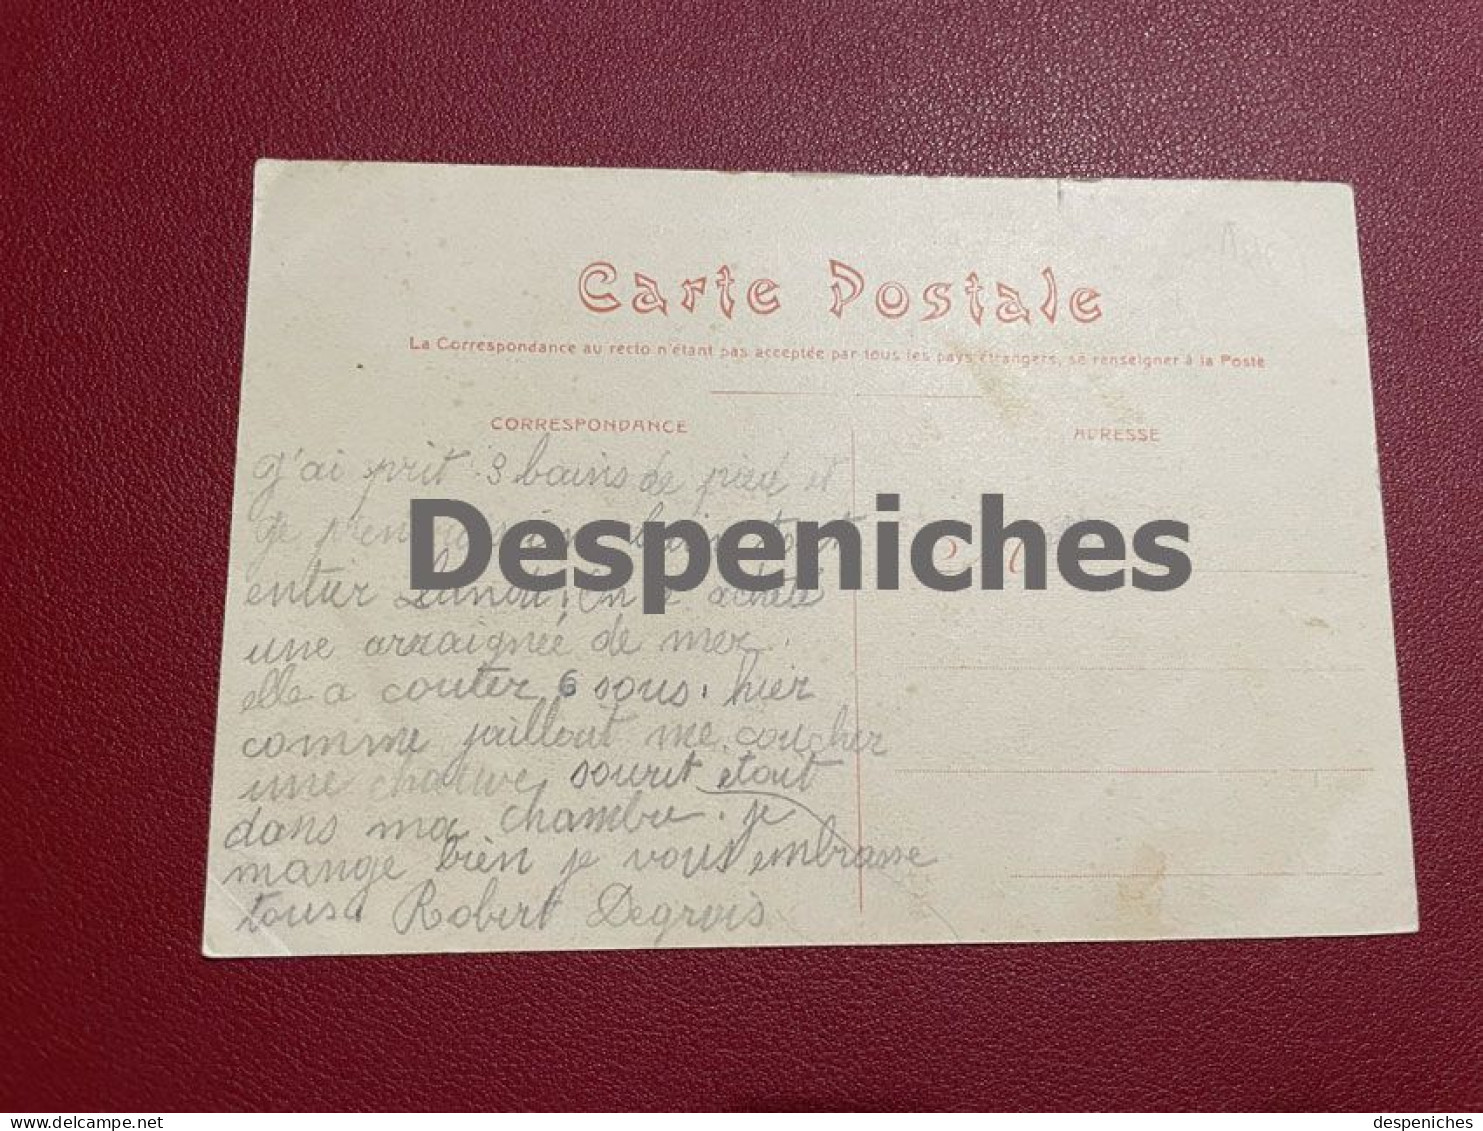 Carte Postale
La Correspondance au recto n'étant pas acceptée par tous les pays étrangers, se renseigner à la Poste
CORRESPONDANCE
ADRESSE
J'ai prit 3 bains de pied et
Je bain tout
entier Lundi! On a acheté
une arraignée de mer.
elle a couter 6 sous. hier
comme jaillout me coucher
une chauve sourit etout
dans ma chambre. je
mange bien je vous embrasse
tous. Robert Degrois
Despeniches
www.delcampe.net
despeniches